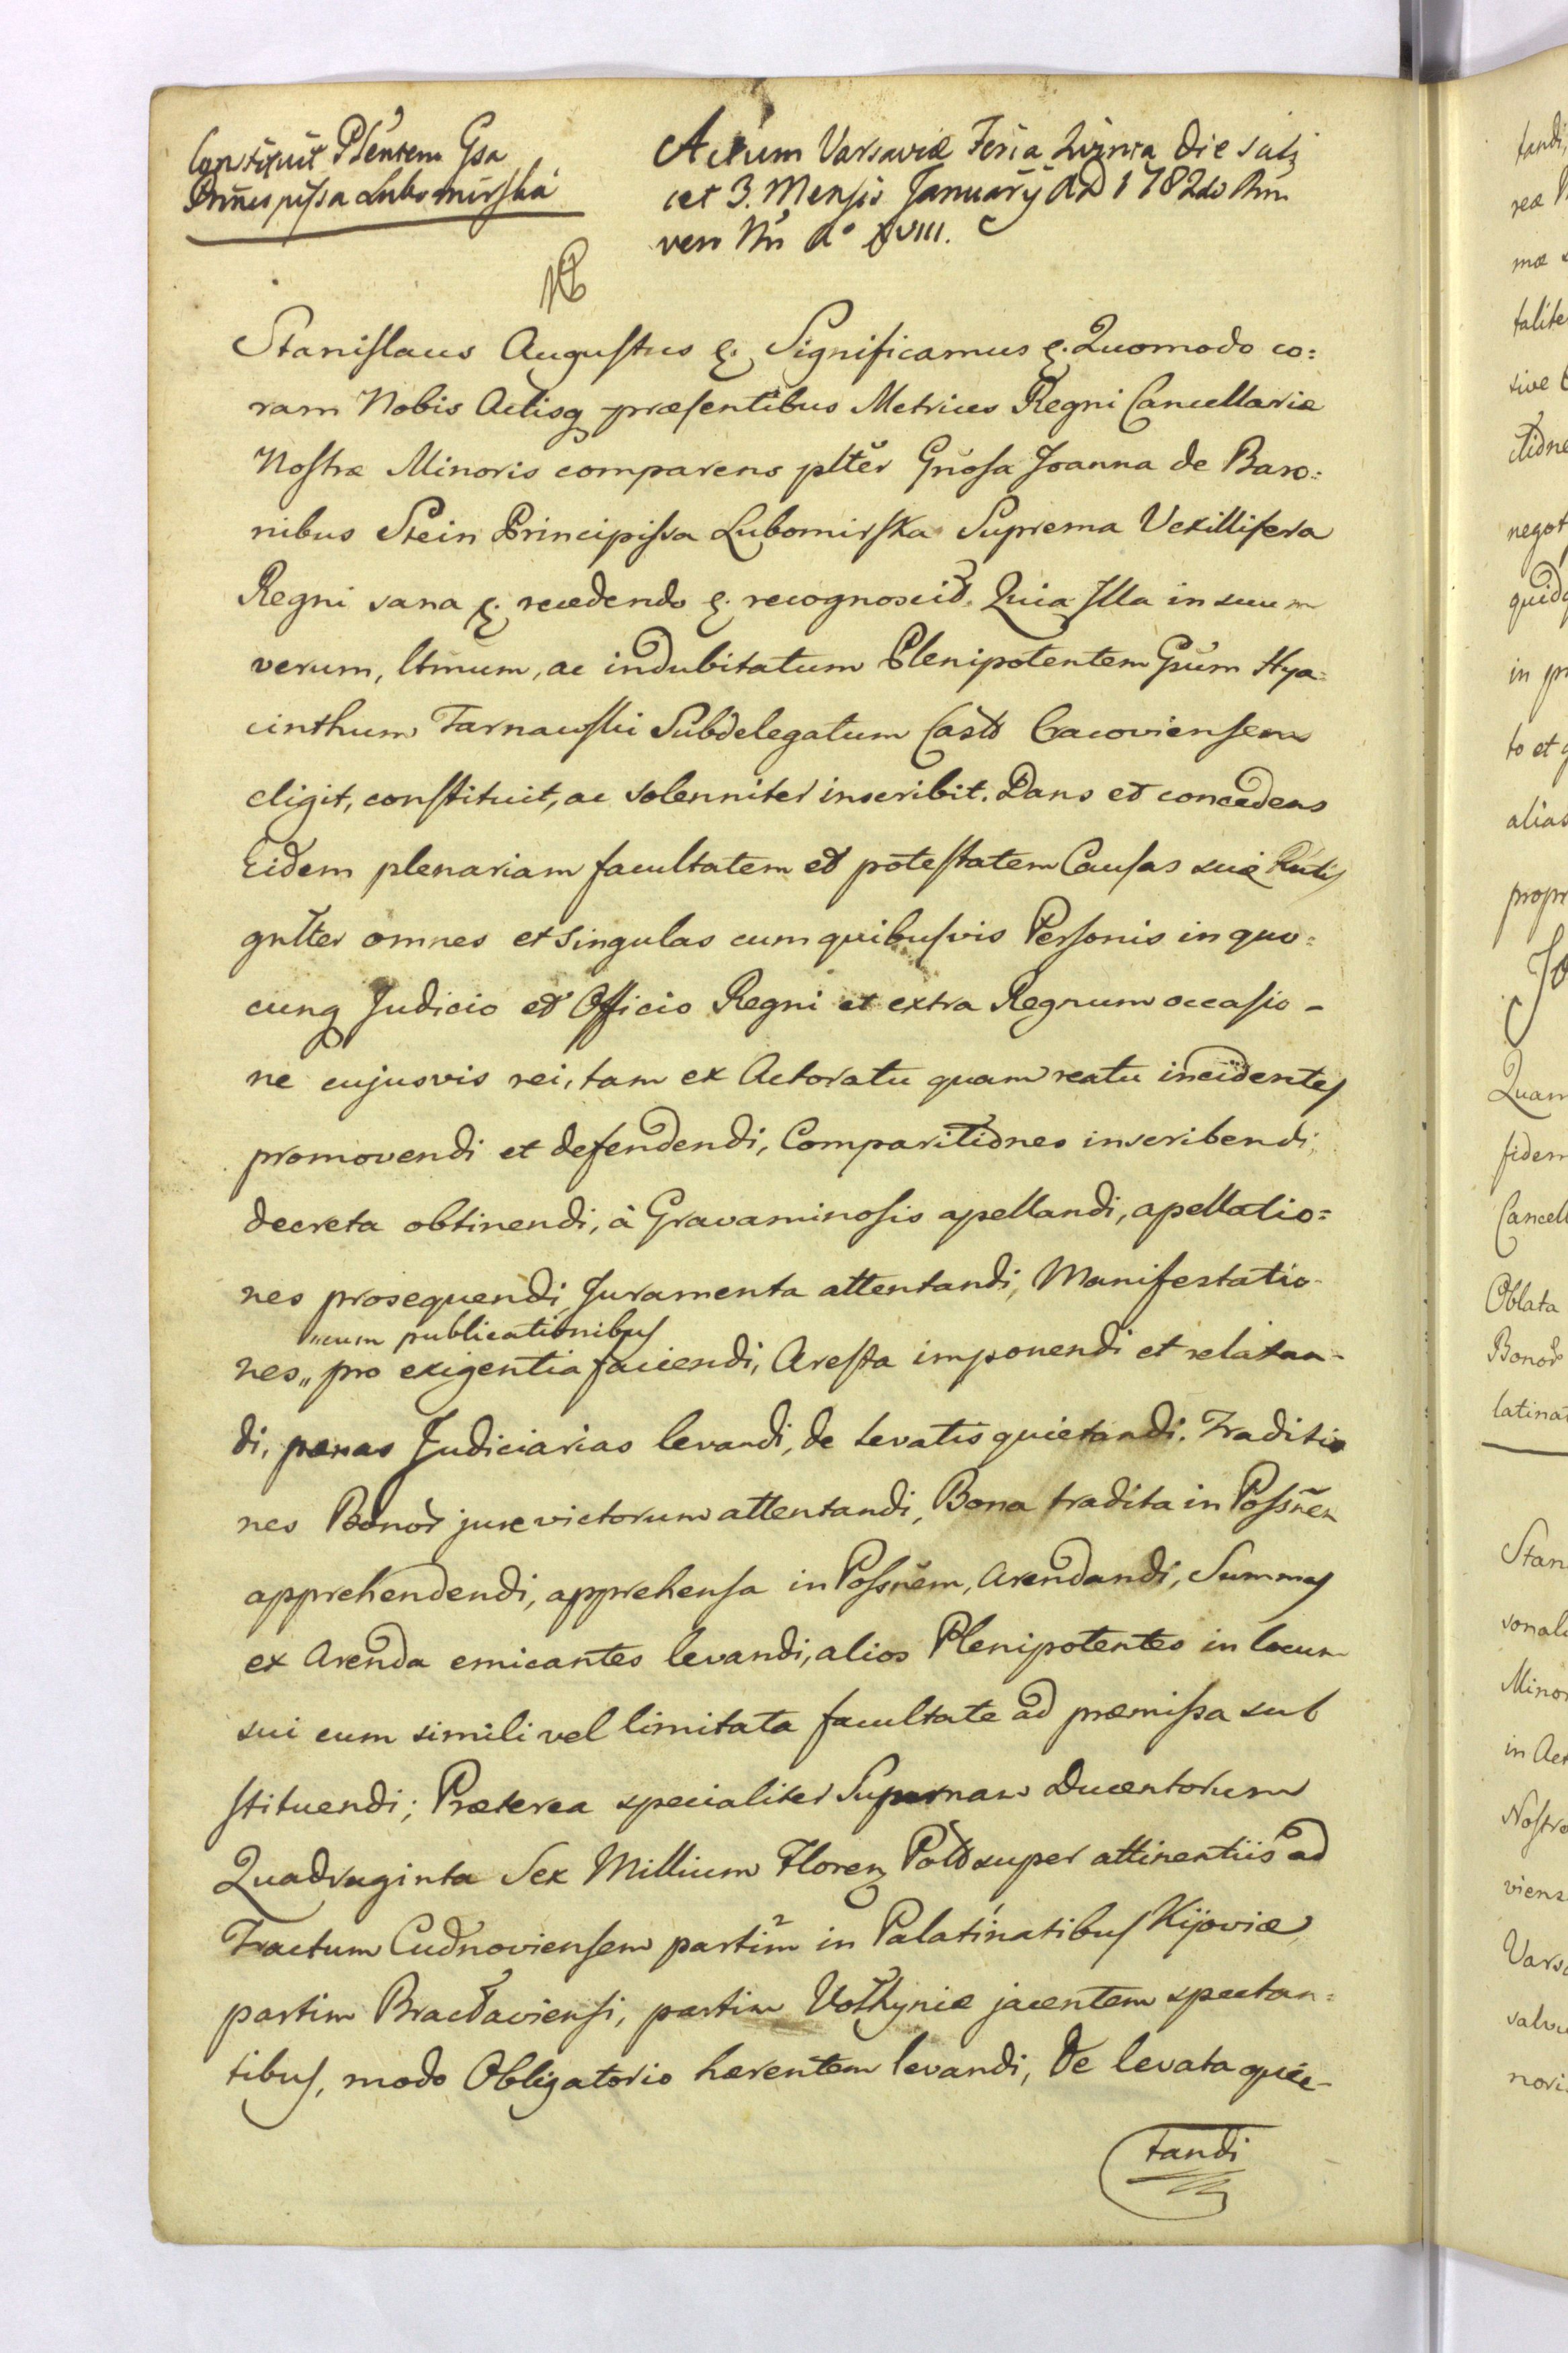 Constituit Plentem Gsa
Principissa Lubomirska
Actum Varsaviæ Feria Quinta Die scili
cet 3. Mensis Januarÿ AD 1782do Rni
vero Nri Ao XVIII.
NB
Stanislaus Augustus &. Significamus &. Quomodo co:
ram Nobis Actisq præsentibus Metrices Regni Cancellariæ
Nostræ Minoris comparens plter Gnosa Joanna de Baro:
nibus Stein Principissa Lubomirska Suprema Vexillifera
Regni sana &. recedendo &. recognoscit. Quia Illa in suum
verum, ltmum, ac indubitatum Plenipotentem Gsum Hya:
cinthum Tarnawski Subdelegatum Castr Cracoviensem
eligit, constituit, ac solenniter inscribit. Dans et concedens
Eidem plenariam facultatem et potestatem Causas suæ Rntis
gnlter omnes et singulas cum quibusvis Personis in quo:
cunq Judicio et Officio Regni et extra Regnum occasio-
ne cujusvis rei, tam ex Actoratu quam reatu incidentes
promovendi et defendendi, Comparitiones inscribendi,
decreta obtinendi, à Gravaminosis apellandi, apellatio:
nes prosequendi, Juramenta attentandi, Manifestatio-
"cum publicationibus
nes,, pro exigentia faciendi, Aresta imponendi et relaxan-
di, pænas Judiciarias levandi, de levatis quietandi. Traditio
nes Bonor jure victorum attentandi, Bona tradita in Possnem
apprehendendi, apprehensa in Possnem, Arendandi, Summas
ex Arenda emicantes levandi, alios Plenipotentes in locum
sui cum simili vel limitata facultate ad præmissa sub
stituendi; Præterea specialiter Summam Ducentorum
Quadraginta Sex Millium Floren Pold super attinentiis ad
Tractum Cudnoviensem partim in Palatinatibus Kijoviæ
partim Braclaviensi, partim Volhyniæ jacentem spectan:
tibus, modo Obligatorio hærentem levandi, de levata quie-
tandi